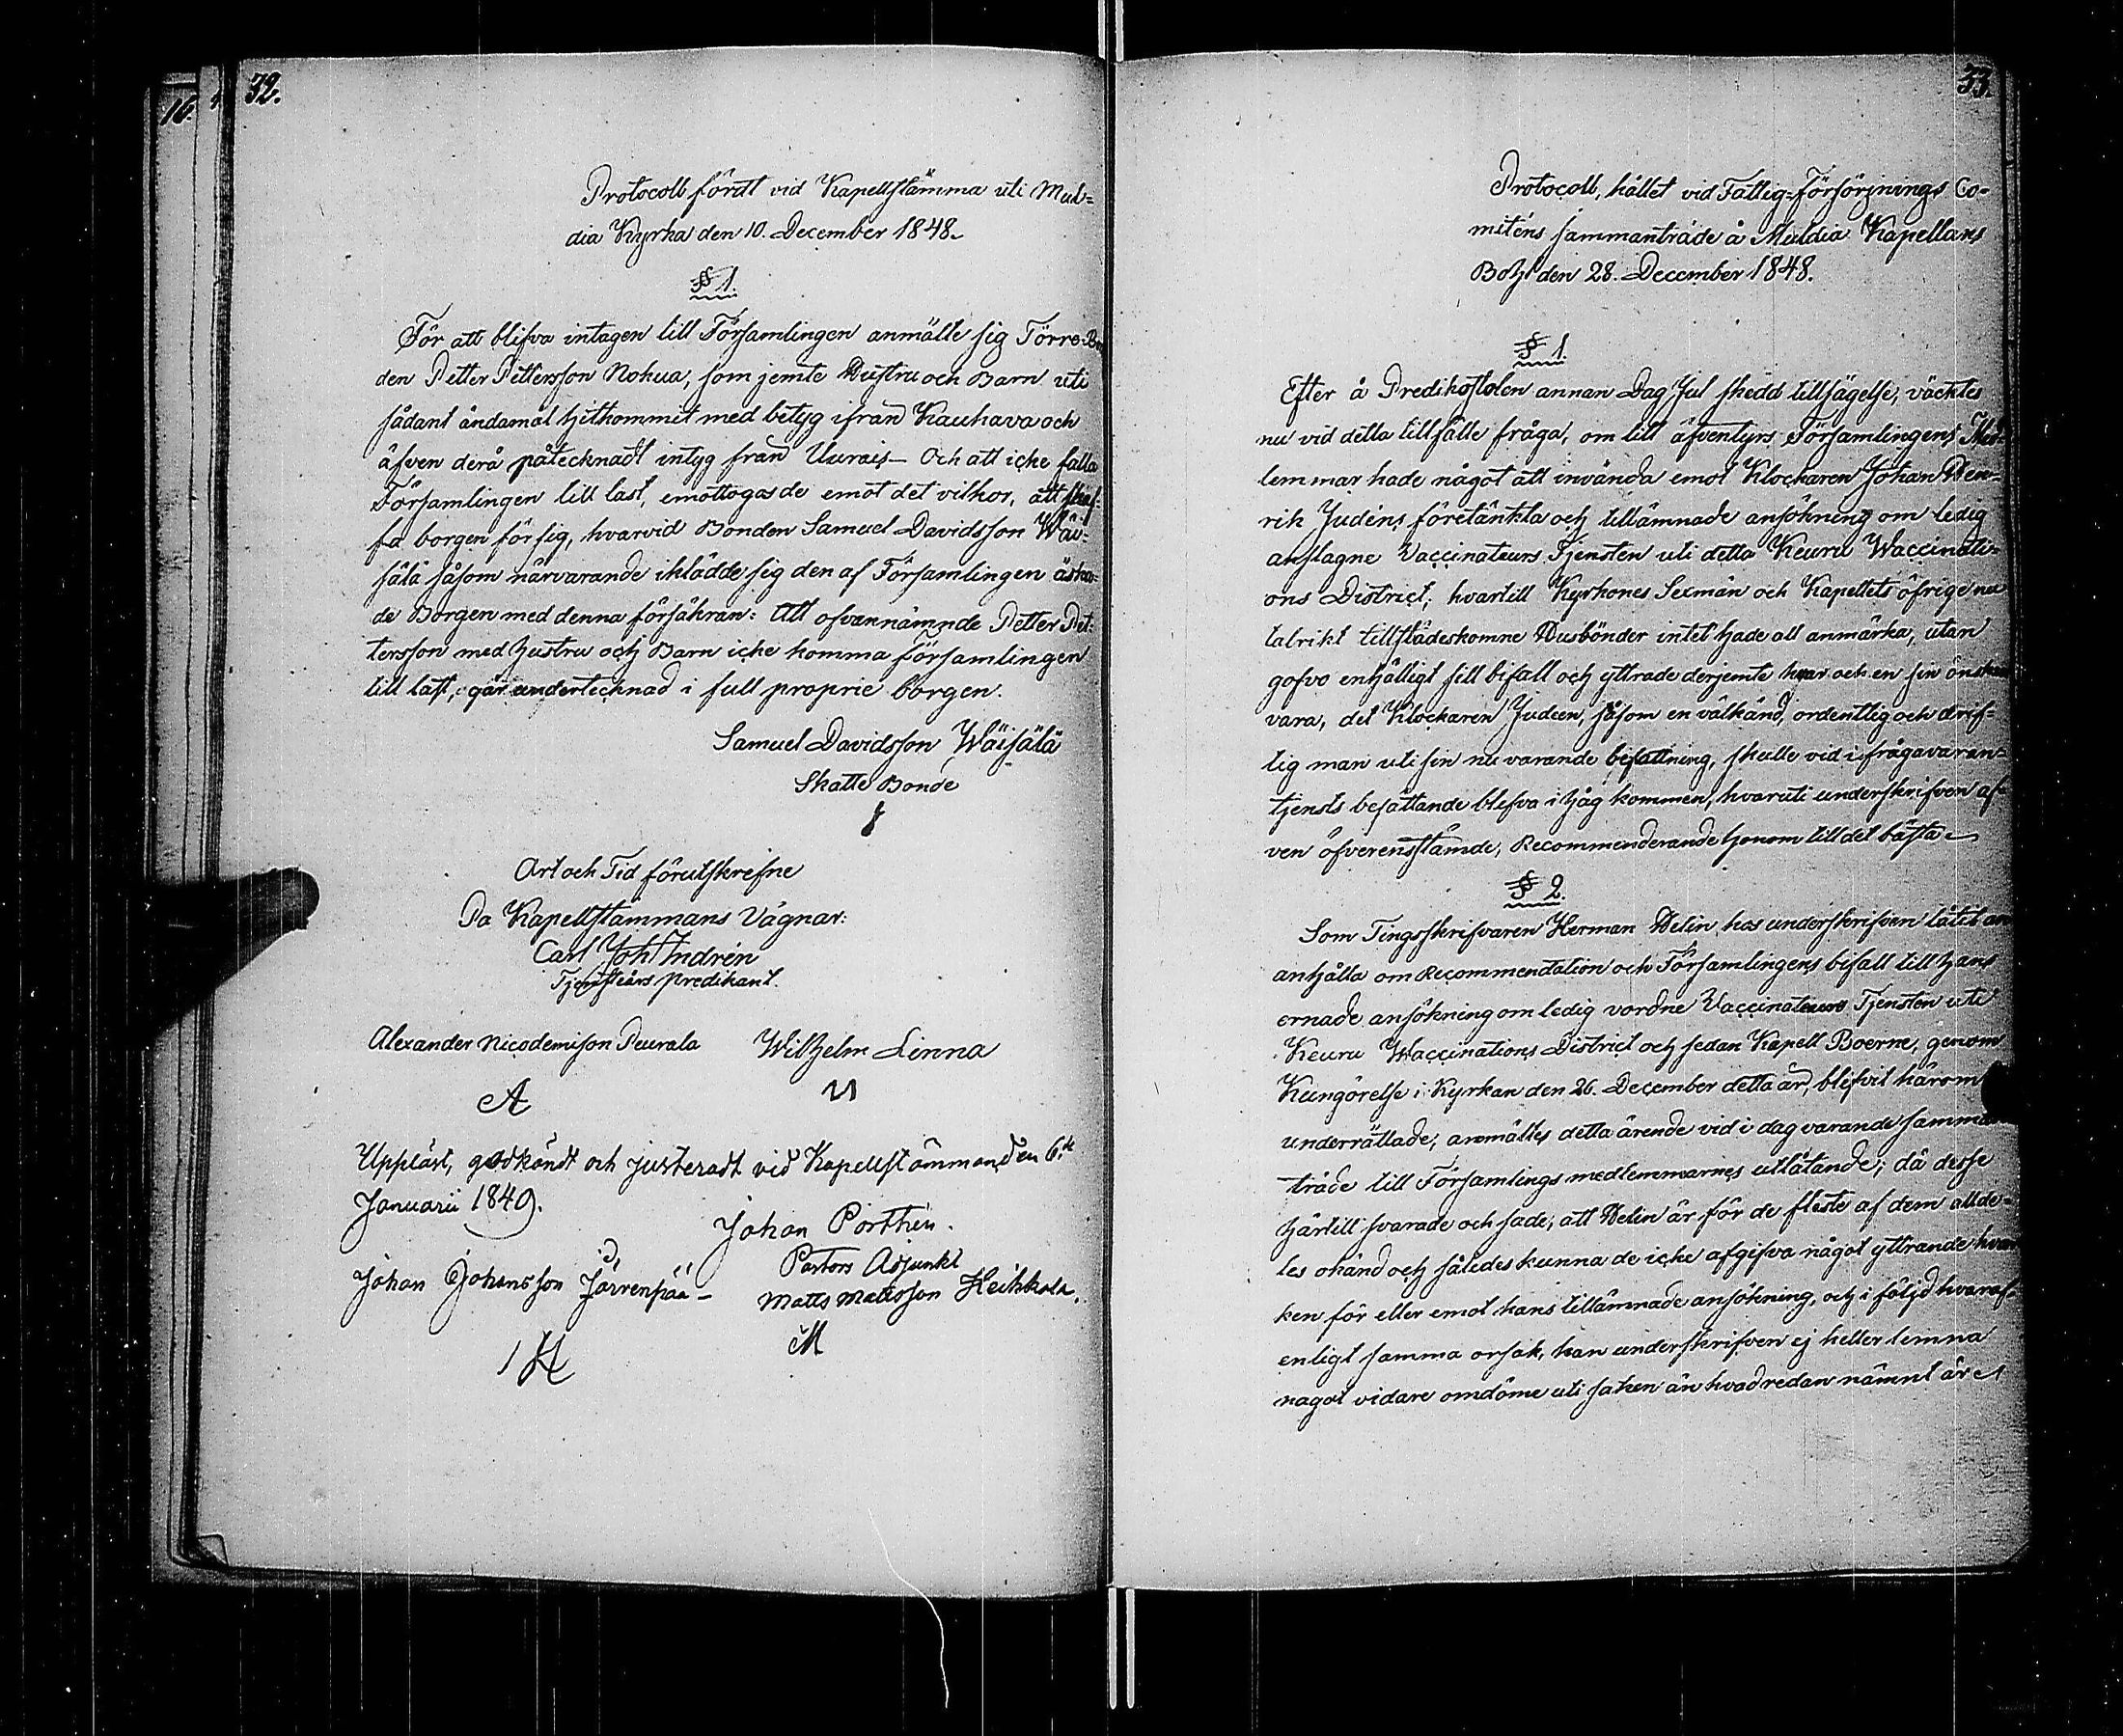 16.
32.
Protocoll fördt vid Kapellstämma uti Mul=
dia Kyrka den 10. December 1848.
§ 1.
För att blifva intagen till Församlingen anmälte sig Törre-Bon
den Petter Pettersson Nohua, som jemte Hustru och Barn uti
sådant ändamål hitkommit med betyg ifrån Kauhava och
äfven derå påtecknadt intyg från Uurais – Och att icke falla
Församlingen till last, emottogas de emot det vilkor, att skaf=
fa borgen för sig, hvarvid Bonden Samuel Davidsson Wäi=
sälä såsom närvarande iklädde sig den af Församlingen äskan=
de Borgen med denna försäkran: Att ofvannämnde Petter Pet=
tersson med hustru och Barn icke komma Församlingen
till last, går undertecknad i full proprie borgen.
Samuel Davidsson Wäisälä
Skatte Bonde
Ort och Tid förutskrefne
På Kapellstämmans Vägnar:
Carl Joh Indrén
Tjensteårs predikant.
Alexander Nicodemison Peurala Wilhelm Linna
A
Uppläst, godkändt och justeradt vid Kapellstämman den 6.te
Januarii 1849.
Johan Porthén.
Pastors Adjunkt
Johan Johansson Järvenpää –
Matts Mattsson Heikkala.
M
33.
Protocoll, hållet vid Fattig=Försörjnings Co-
miténs sammanträde å Muldia Kapellans
Bohl den 28. December 1848.
§ 1.
Efter å Predikostolen annan Dag Jul skedd tillsägelse, väcktes
nu vid detta tillfälle fråga, om till äfventyrs Församlingens Med=
lemmar hade något att invända emot Klockaren Johan Hen-
rik Judéns företänkta och tillämnade ansökning om ledig
anslagne Vaccinateurs Tjensten uti detta Keuru Waccinati=
ons District; hvartill Kyrkones Sexmän och Kapellets öfrige nu
talrikt tillstädeskomne Husbönder intet hade att anmärka, utan
gofvo enhälligt sitt bifall och yttrade derjemte hvar och en sin önskan
vara, det Klockaren Judeen, såsom en välkänd, ordentlig och drif=
tig man uti sin nu varande befattning, skulle vid i frågavaran=
tjensts besättande blefva i håg kommen, hvaruti underskrifven äf=
ven öfverensstämde, Recommenderande honom till det bästa
§ 2.
Som Tingsskrifvaren Herman Helin hos underskrifven låtit an
anhålla om Recommendation och Församlingens bifall till hans
ernade ansökning om ledig vordne Vaccinateurs Tjensten uti
Keuru Waccinations District och sedan Kapell Boerne, genom
Kungörelse i Kyrkan den 26. December detta år, blifvit härom
underrättade; anmältes detta ärende vid i dag varande samman
träde till Församlings medlemmarnes utlåtande; då desse
härtill svarade och sade, att Helin är för de fleste af dem allde=
les okänd och således kunna de icke afgifva något yttrande hvar
ken för eller emot hans tillämnade ansökning, och i följd hvaraf
enligt samma orsak, kan underskrifven ej heller lemna
något vidare omdöme uti saken än hvad redan nämnt är